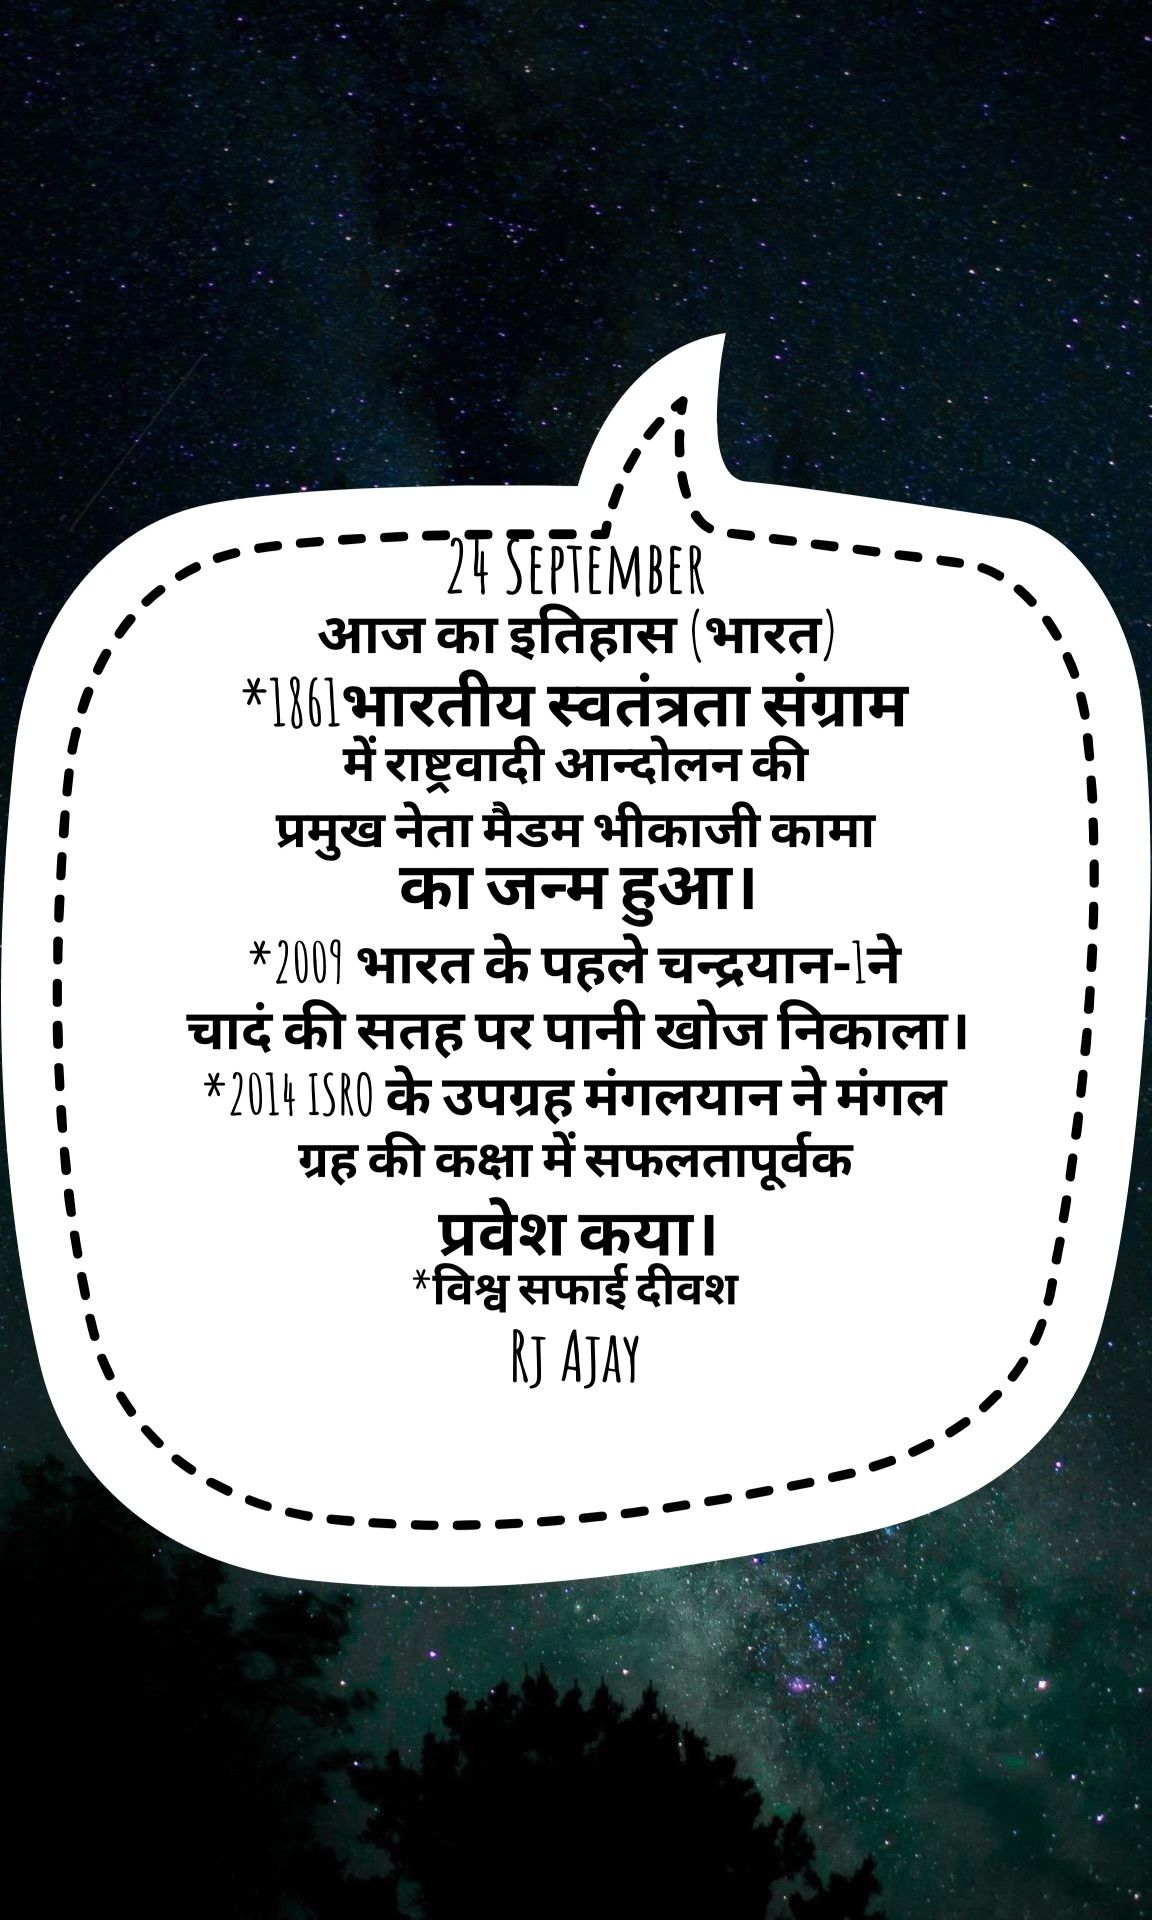 24 September
आज का इतिहास (भारत)
*1861भारतीय स्वतंत्रता संग्राम
में राष्ट्रवादी आन्दोलन की
प्रमुख नेता मैडम भीकाजी कामा
का जन्म हुआ।
*2009 भारत के पहले चन्द्रयान-1ने
चादं की सतह पर पानी खोज निकाला।
*2014 ISRO के उपग्रह मंगलयान ने मंगल
ग्रह की कक्षा में सफलतापूर्वक
प्रवेश कया।
*विश्व सफाई दीवश
Rj Ajay